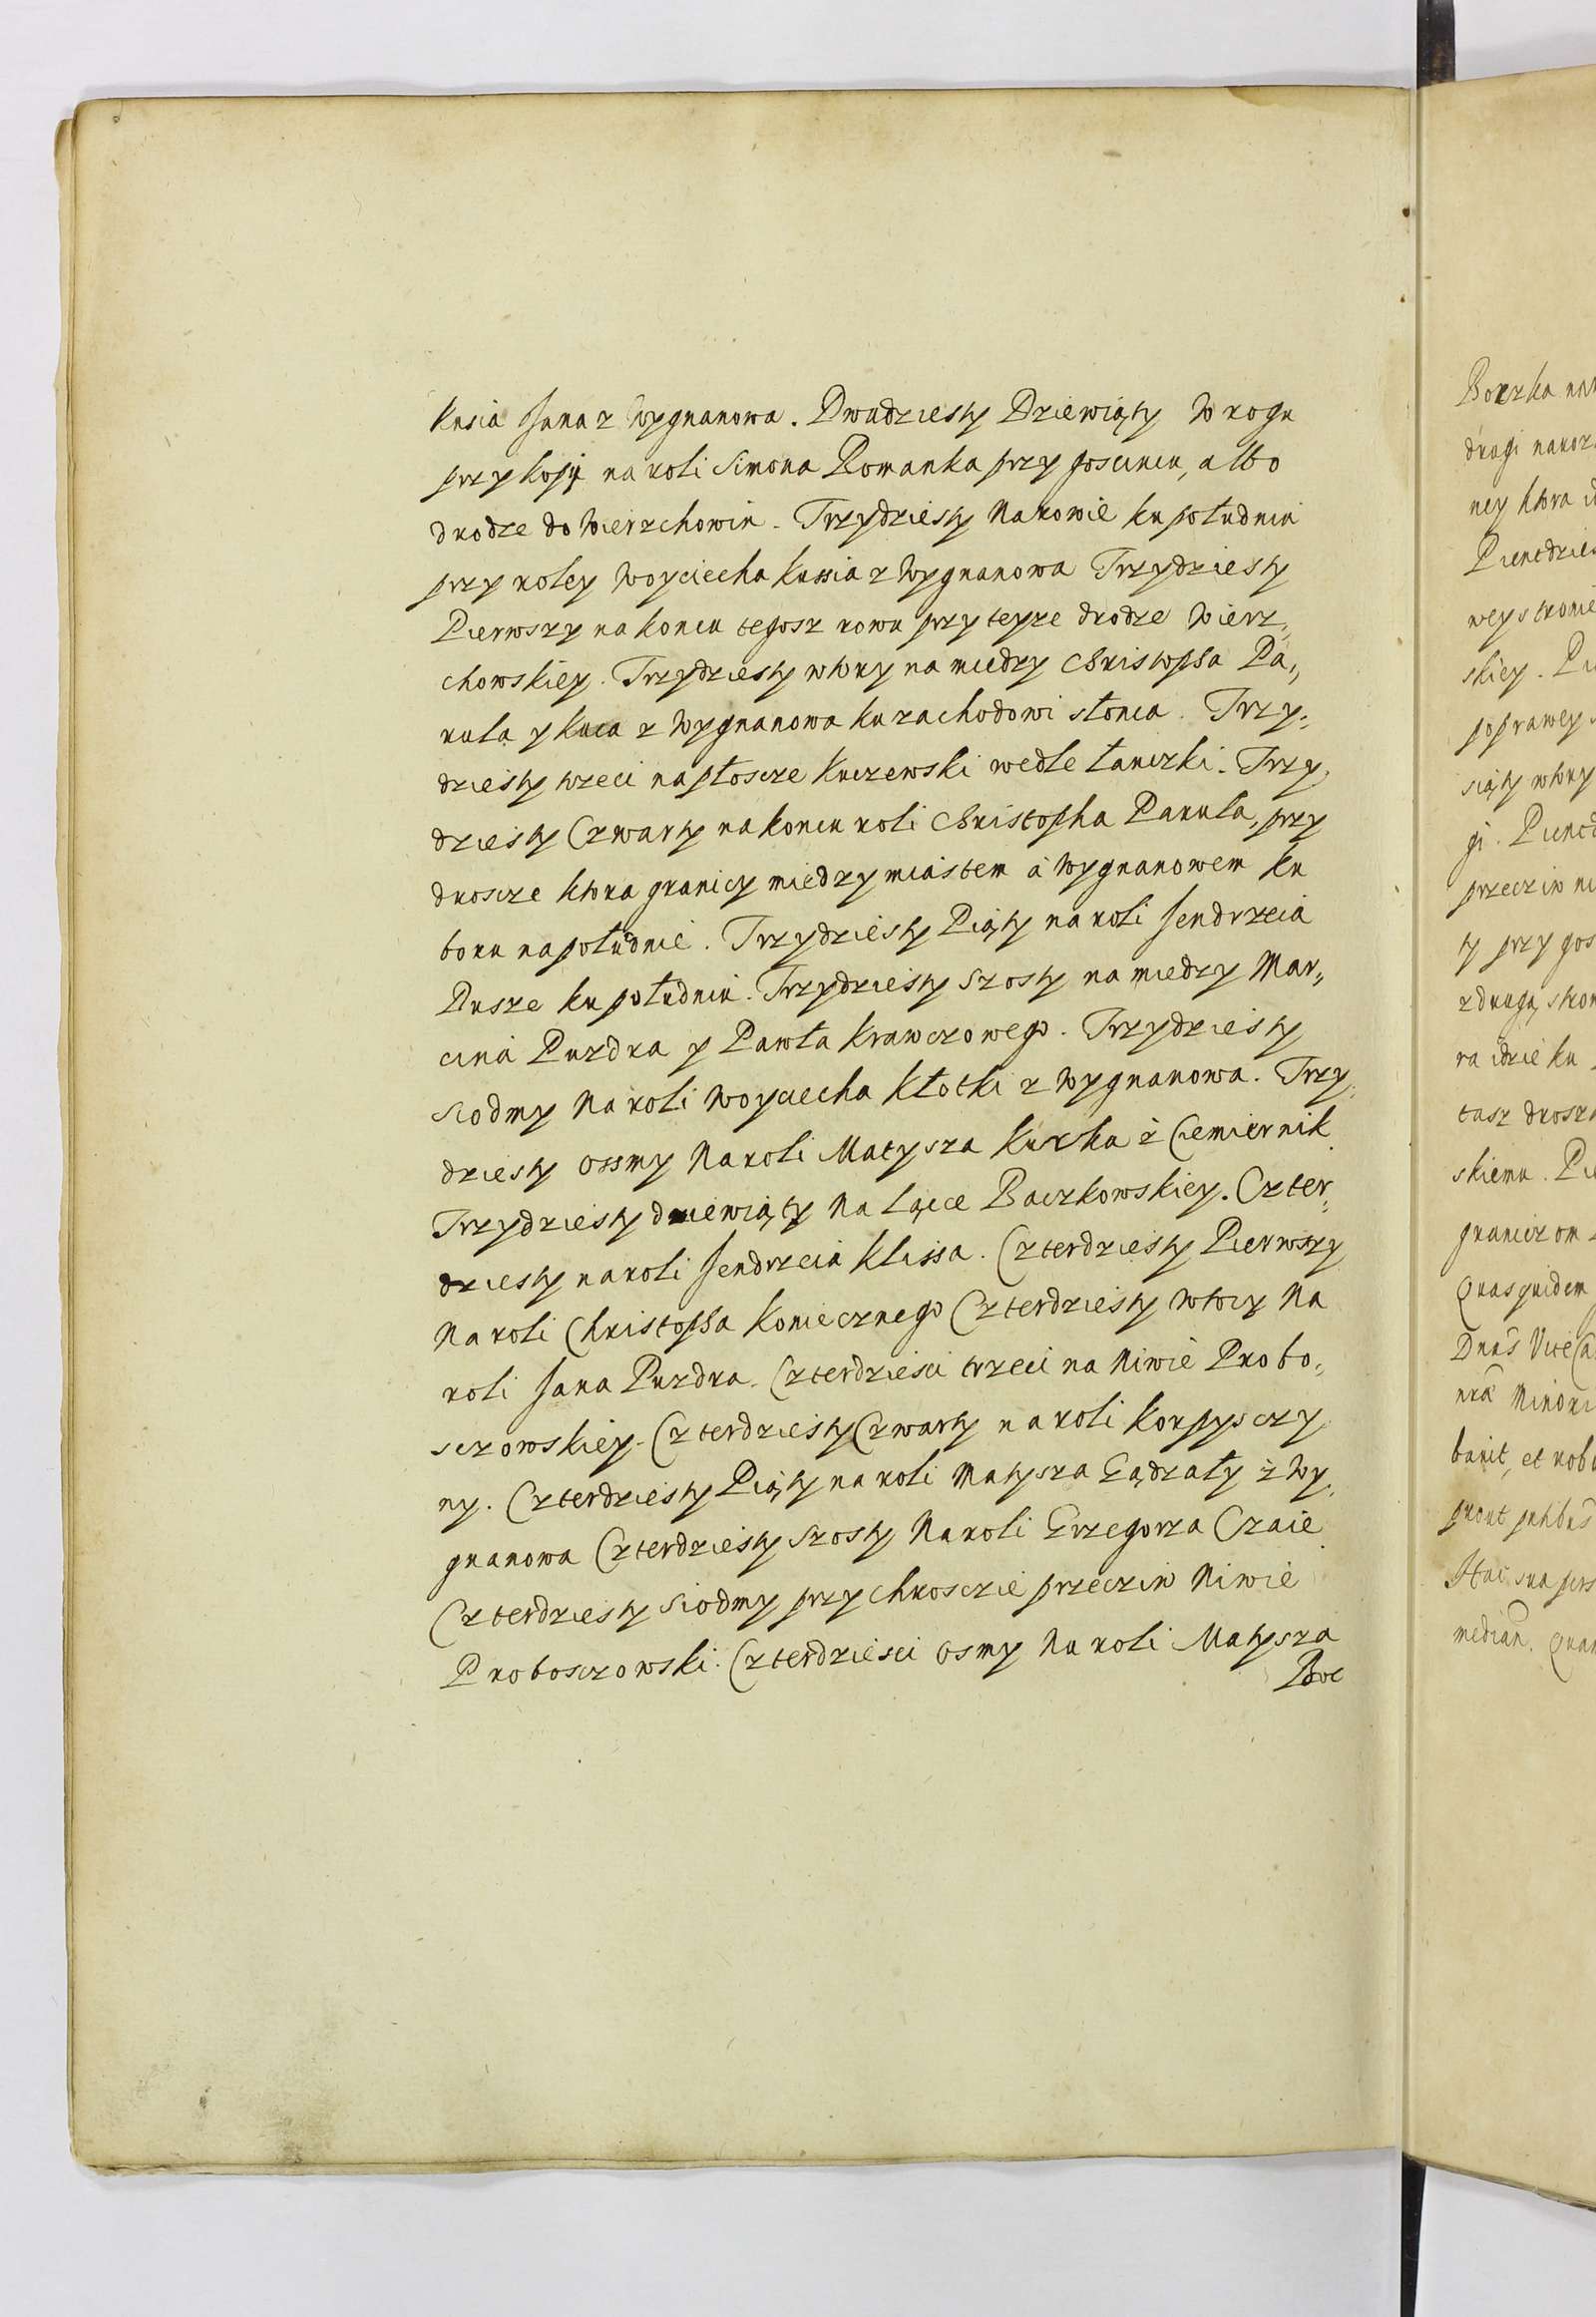 Kusia Jana z Wygnanowa. Dwudziesty Dziewiąty W rogu
przy kopy na roli Simona Romanka przy goscincu, albo
drodze do Wierzchowin. Trzydziesty Na rowie ku południu
przy roley Woyciecha Kussia z Wygnanowa Trzydziesty
Pierwszy na koncu tegosz rowu przy teyze drodze Wierz„
chowskiey. Trzydziesty wtory na miedzy Christopha Pa„
rula y Kuca z Wygnanowa ku zachodowi słonca. Trzy„
dziesty trzeci na płoscze Kuczewski wedle łanczki. Trzy„
dziesty Czwarty na koncu roli Christopha Parula, przy
droszce ktora graniczy miedzy miastem a Wygnanowem ku
boru na południe. Trzydziesty Piąty na roli Jendrzeia
Dusze ku południu. Trzydziesty Szosty na miedzy Mar„
cina Puzdra y Pawła Krawczowego. Trzydziesty
Siodmy Na roli Woyciecha Kłotki z Wygnanowa. Trzy„
dziesty ossmy Na roli Matysza Kurka z Ciemiernik
Trzydziesty dziewiąty Na Łące Baczkowskiey. Czter„
dziesty na roli Jendrzeia Klissa. Czterdziesty Pierwszy
Na roli Christopha Koniecznego Czterdziesty Wtory Na
roli Jana Puzdra. Czterdziesci trzeci na Niwie Probo„
sczowskiey. Czterdziesty Czwarty na roli Korpysczy
ny. Czterdziesty Piąty na roli Matysza Gądzały z Wy„
gnanowa Czterdziesty Szosty Na roli Grzegorza Czaie
Czterdziesty Siodmy przy chrosczie przeciw Niwie
Probosczowski. Czterdziesci osmy Na roli Matysza
Boc
Boczka na
drugi na
ney ktora
Piencdzies
wey stronie
skiey.
po prawey
siąty wtory
gi. Piencd
przeciw ni
ty przy gos
z drugą stron
ra idzie ku
tasz drosz
skiemu.
granicz om
Quasquidem
Dnus Vice
Minori
et rob
prout
Hac sua
median. quam